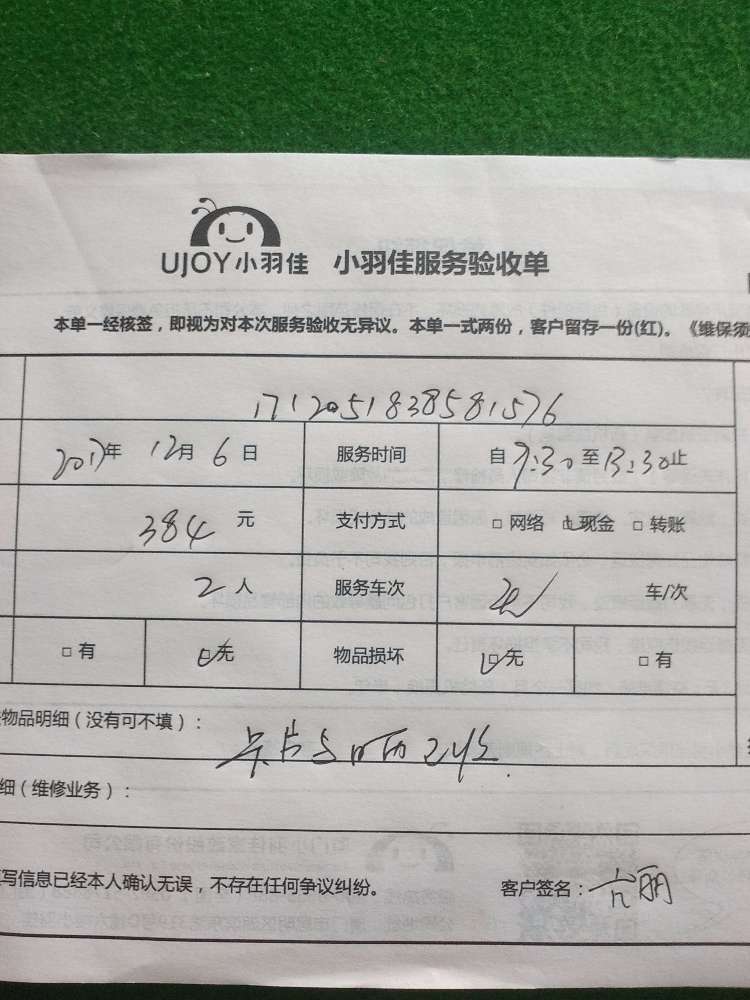 UJOY小羽佳 小羽佳服务验收单
本单一经核签，即视为对本次服务验收无异议。本单一式两份，客户留存一份(红)。《维保须
1712051838581576
2017年 12月 6 日 服务时间 自 9:30 至 13:30 止
384 元 支付方式 □ 网络 □ 现金 □ 转账
2 人 服务车次 车/次
□ 有 □ 无 物品损坏 □ 无 □ 有
物品明细（没有可不填）：
卡片与日历
细（维修业务）：
写信息已经本人确认无误，不存在任何争议纠纷。 客户签名： 丽